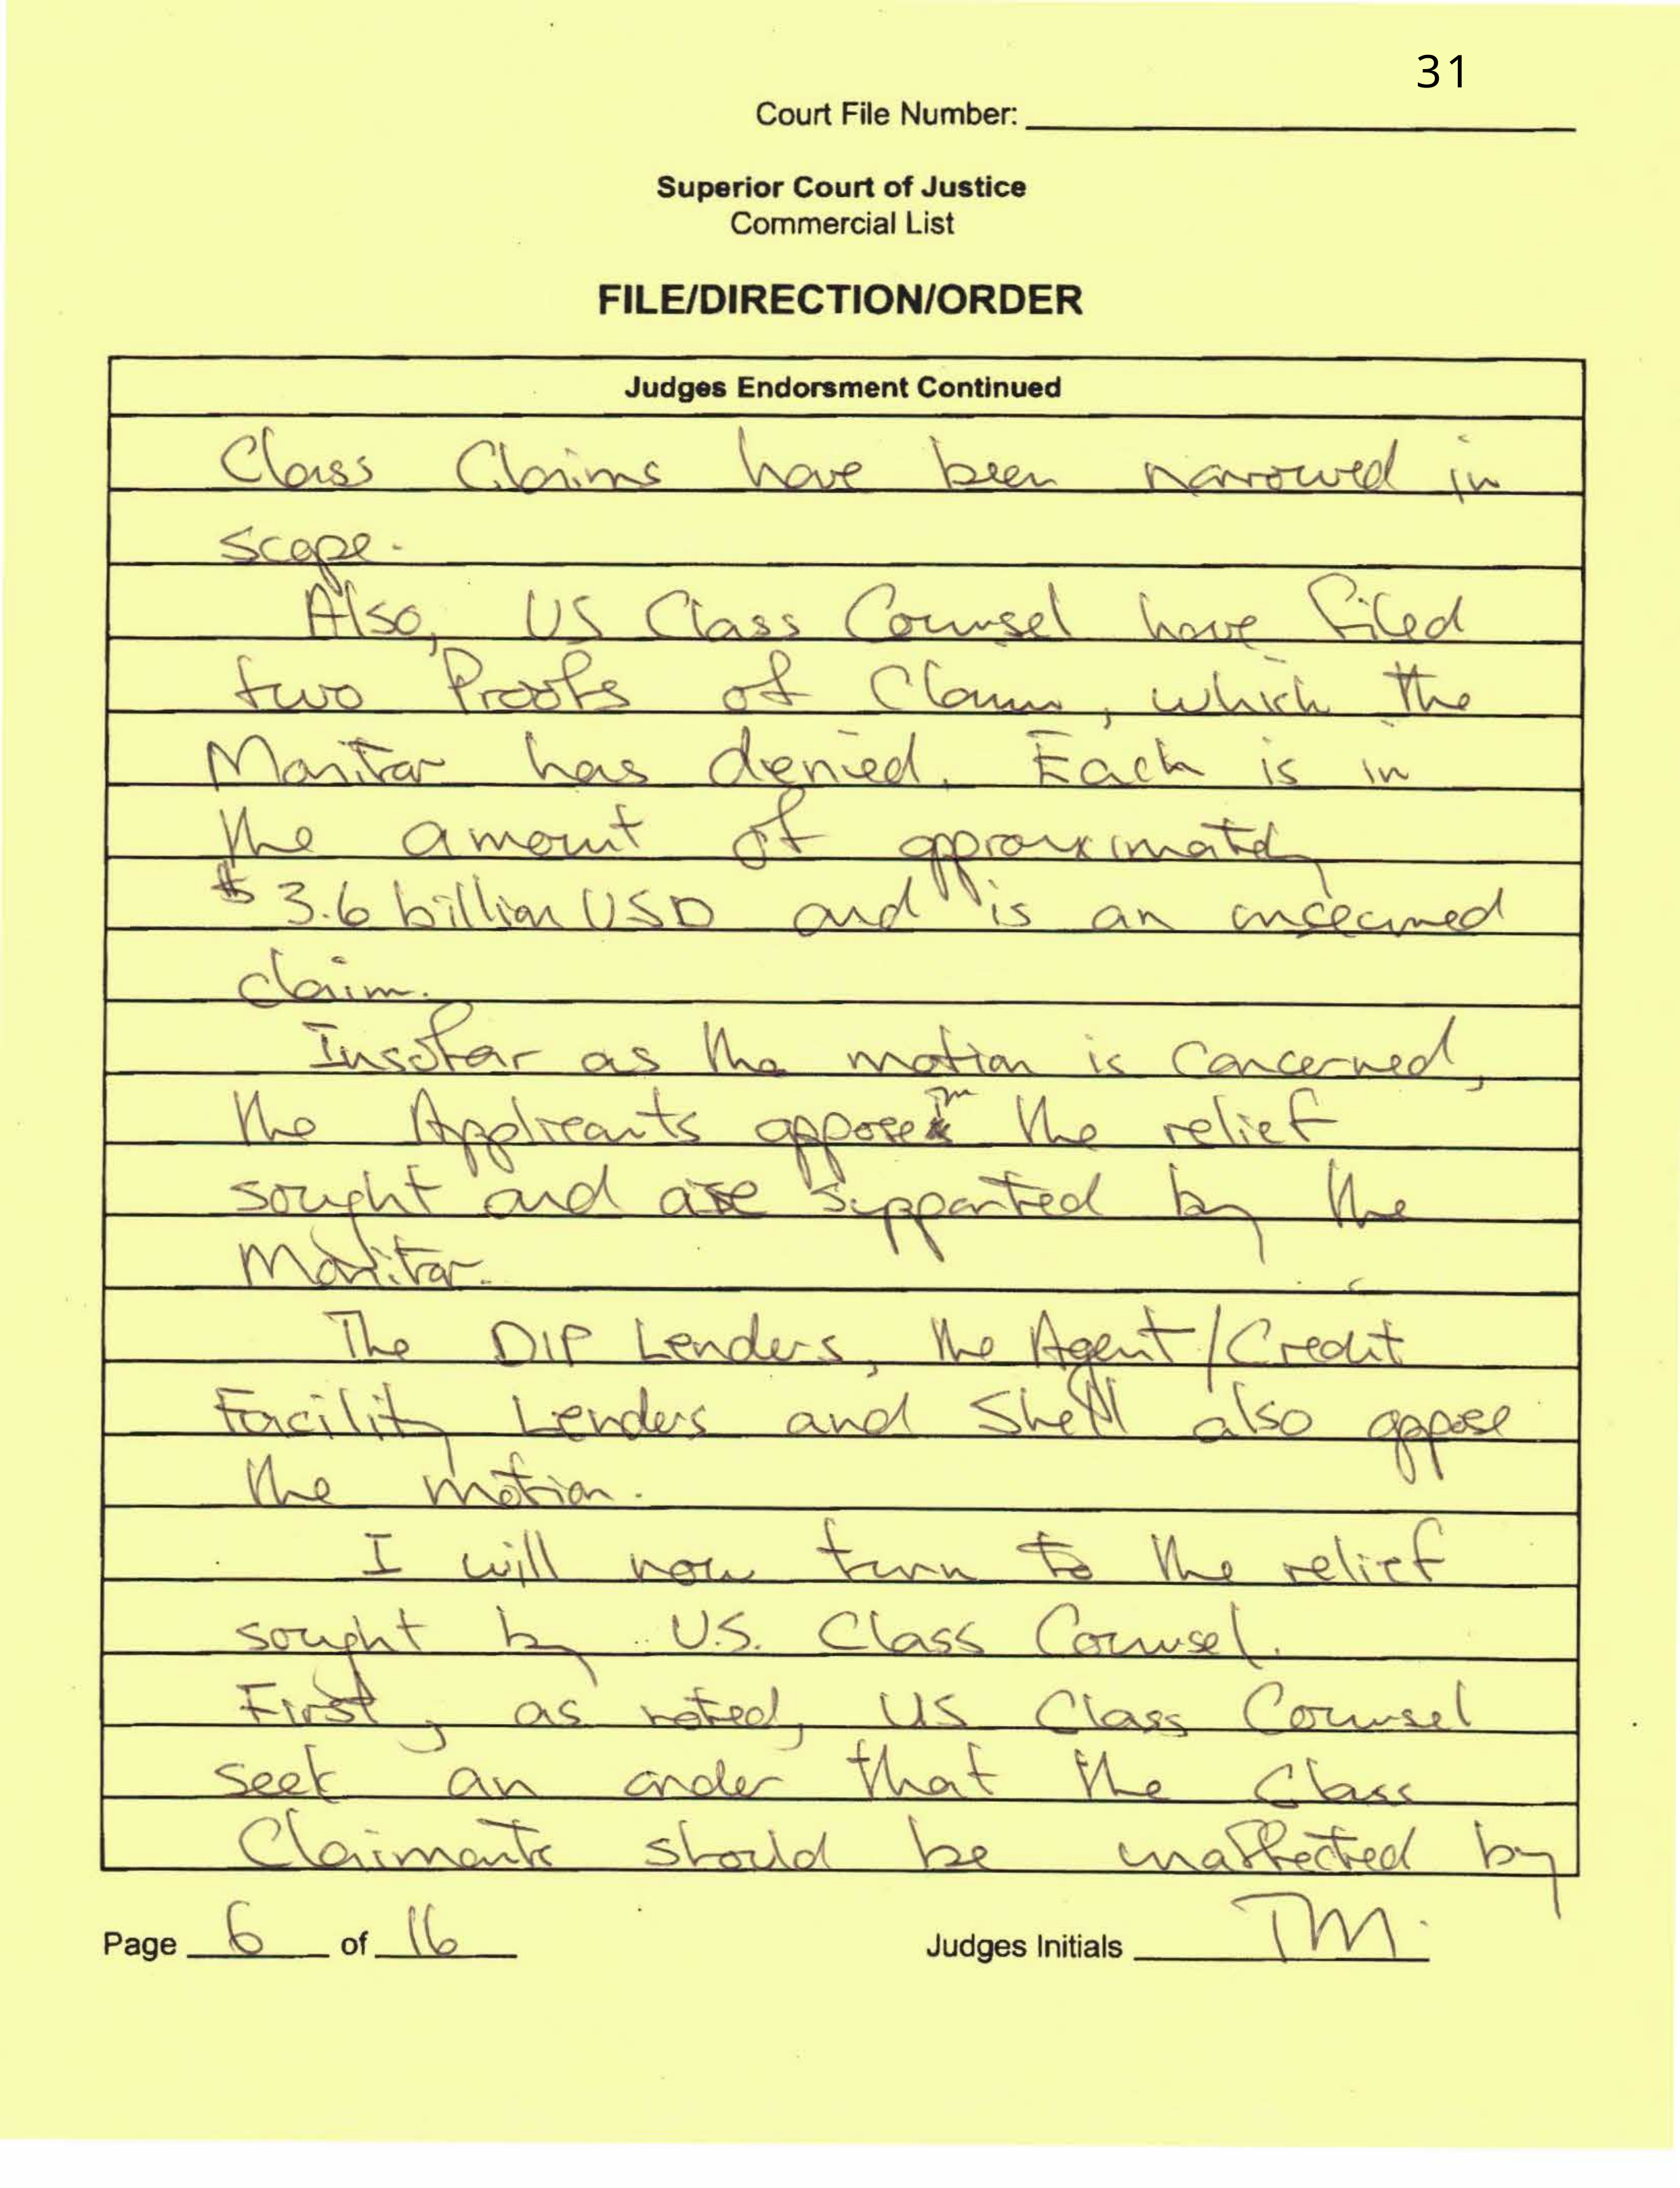 31
Court File Number:
Superior Court of Justice
Commercial List
FILE/DIRECTION/ORDER
Judges Endorsment Continued
Class Claims have been narrowed in
scope.
Also, US Class Counsel have filed
two Proofs of Claim, which the
Monitor has denied. Each is in
the amount of approximately
$3.6 billion USD and is an unsecured
claim.
Insofar as the motion is concerned,
the Applicants oppose TM the relief
sought and are supported by the
Monitor.
The DIP Lenders, the Agent/Credit
Facility Lenders and Shell also oppose
the motion.
I will now turn to the relief
sought by U.S. Class Counsel.
First, as noted, US Class Counsel
seek an order that the Class
Claimants should be unaffected by
Page 6 of 16 Judges Initials TM.